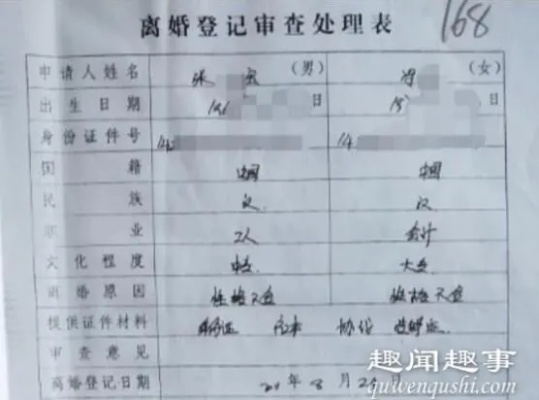 离婚登记审查处理表 168
申请人姓名 张 (男) (女)
出生日期 日 日
身份证件号 14 14
国籍 中国 中国
民族 汉 汉
职业 工人 会计
文化程度 中专 大专
离婚原因 性格不合 性格不合
提供证件材料 户口本 协议 结婚证
审查意见
离婚登记日期 年 月
趣闻趣事
quwenqushi.com